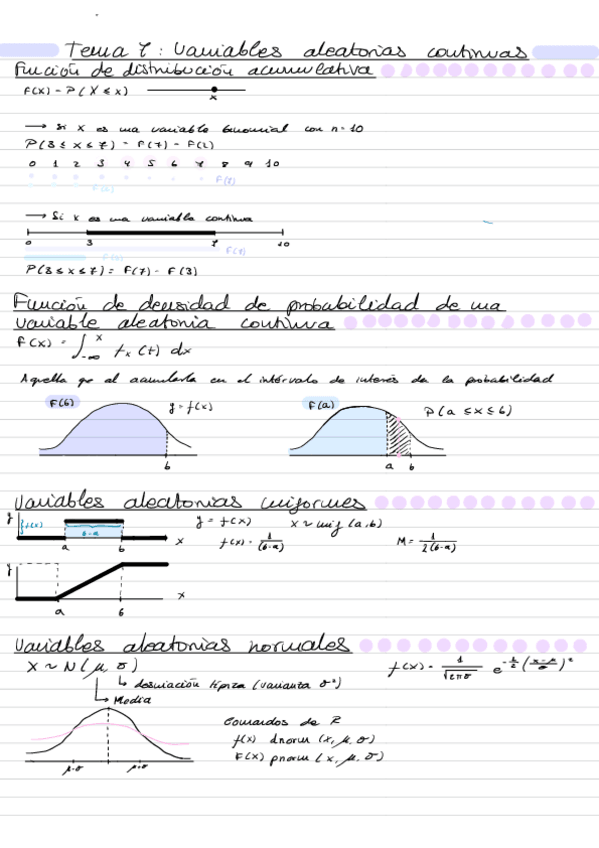 Tema 7: Variables aleatorias continuas
Función de distribución acumulativa
F(x) = P(X ≤ x)
x
→ Si x es una variable binomial con n=10
P(3 ≤ x ≤ 7) = F(7) - F(2)
0 1 2 3 4 5 6 7 8 9 10
F(7)
F(2)
→ Si x es una variable continua
0 3 7 10
F(7)
F(3)
P(3 ≤ x ≤ 7) = F(7) - F(3)
Función de densidad de probabilidad de una
variable aleatoria continua
F(x) = ∫_{-∞}^{x} f_x(t) dx
Aquella que al acumularla en el intervalo de interés da la probabilidad
F(b) y = f(x) F(a) P(a ≤ x ≤ b)
b a b
Variables aleatorias uniformes
y f(x) y = f(x) x ~ unif (a,b)
b-a f(x) = 1/(b-a) M = 1/2(b-a)
a b x
y
x
a b
Variables aleatorias normales
X ~ N(μ, σ) f(x) = 1/√2πσ e^{-1/2 (x-μ/σ)^2}
↳ desviación típica (varianza σ²)
↳ Media
Comandos de R
f(x) dnorm (x, μ, σ)
F(x) pnorm (x, μ, σ)
μ-σ μ+σ